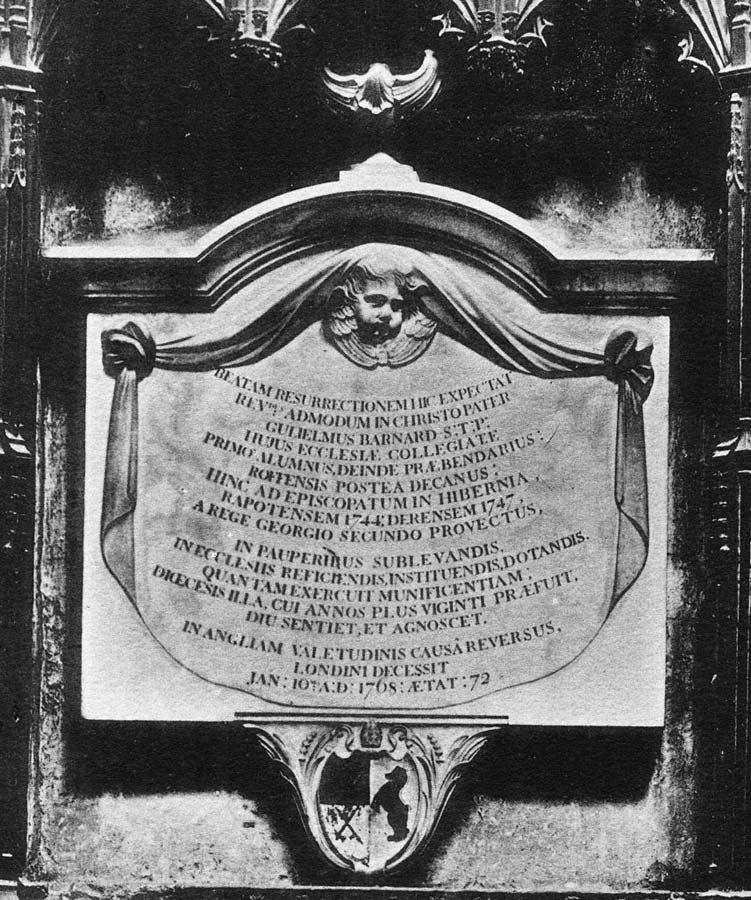 BEATAM RESURRECTIONEM HIC EXPECTAT
REV^MUS ADMODUM IN CHRISTO PATER
GULIELMUS BARNARD S:T:P:
HUJUS ECCLESIÆ COLLEGIATÆ
PRIMO ALUMNUS, DEINDE PRÆBENDARIUS:
ROFFENSIS POSTEA DECANUS:
HINC AD EPISCOPATUM IN HIBERNIA,
RAPOTENSEM 1744; DERENSEM 1747,
A REGE GEORGIO SECUNDO PROVECTUS,
IN PAUPERIBUS SUBLEVANDIS,
IN ECCLESIIS REFICIENDIS, INSTITUENDIS, DOTANDIS.
QUANTAM EXERCUIT MUNIFICENTIAM;
DIŒCESIS ILLA, CUI ANNOS PLUS VIGINTI PRÆFUIT,
DIU SENTIET, ET AGNOSCET.
IN ANGLIAM VALETUDINIS CAUSÂ REVERSUS,
LONDINI DECESSIT
JAN: 10^TH A:D: 1768: ÆTAT: 72